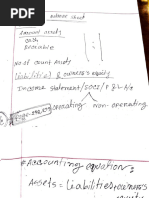 Balance sheet
Current assets
cash
Receivable
No of Count Assets
Liabilities & owners's equity
Income statement/SOCI/P & L A/c
operating non-operating
# Accounting equation:
Assets = Liabilities + owners's
equity